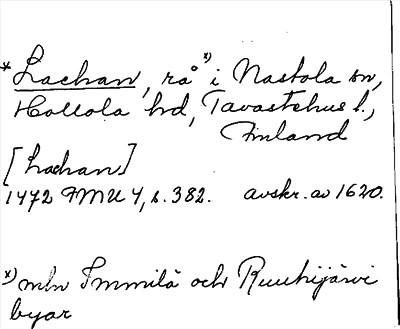 *Lachan, rå *) i Nastola sn,
Hollola hd, Tavastehus l.,
Finland
[Lachan]
1472 FMU 4, s. 382. avskr. av 1620.
*) mln Immilä och Ruuhijärvi
byar